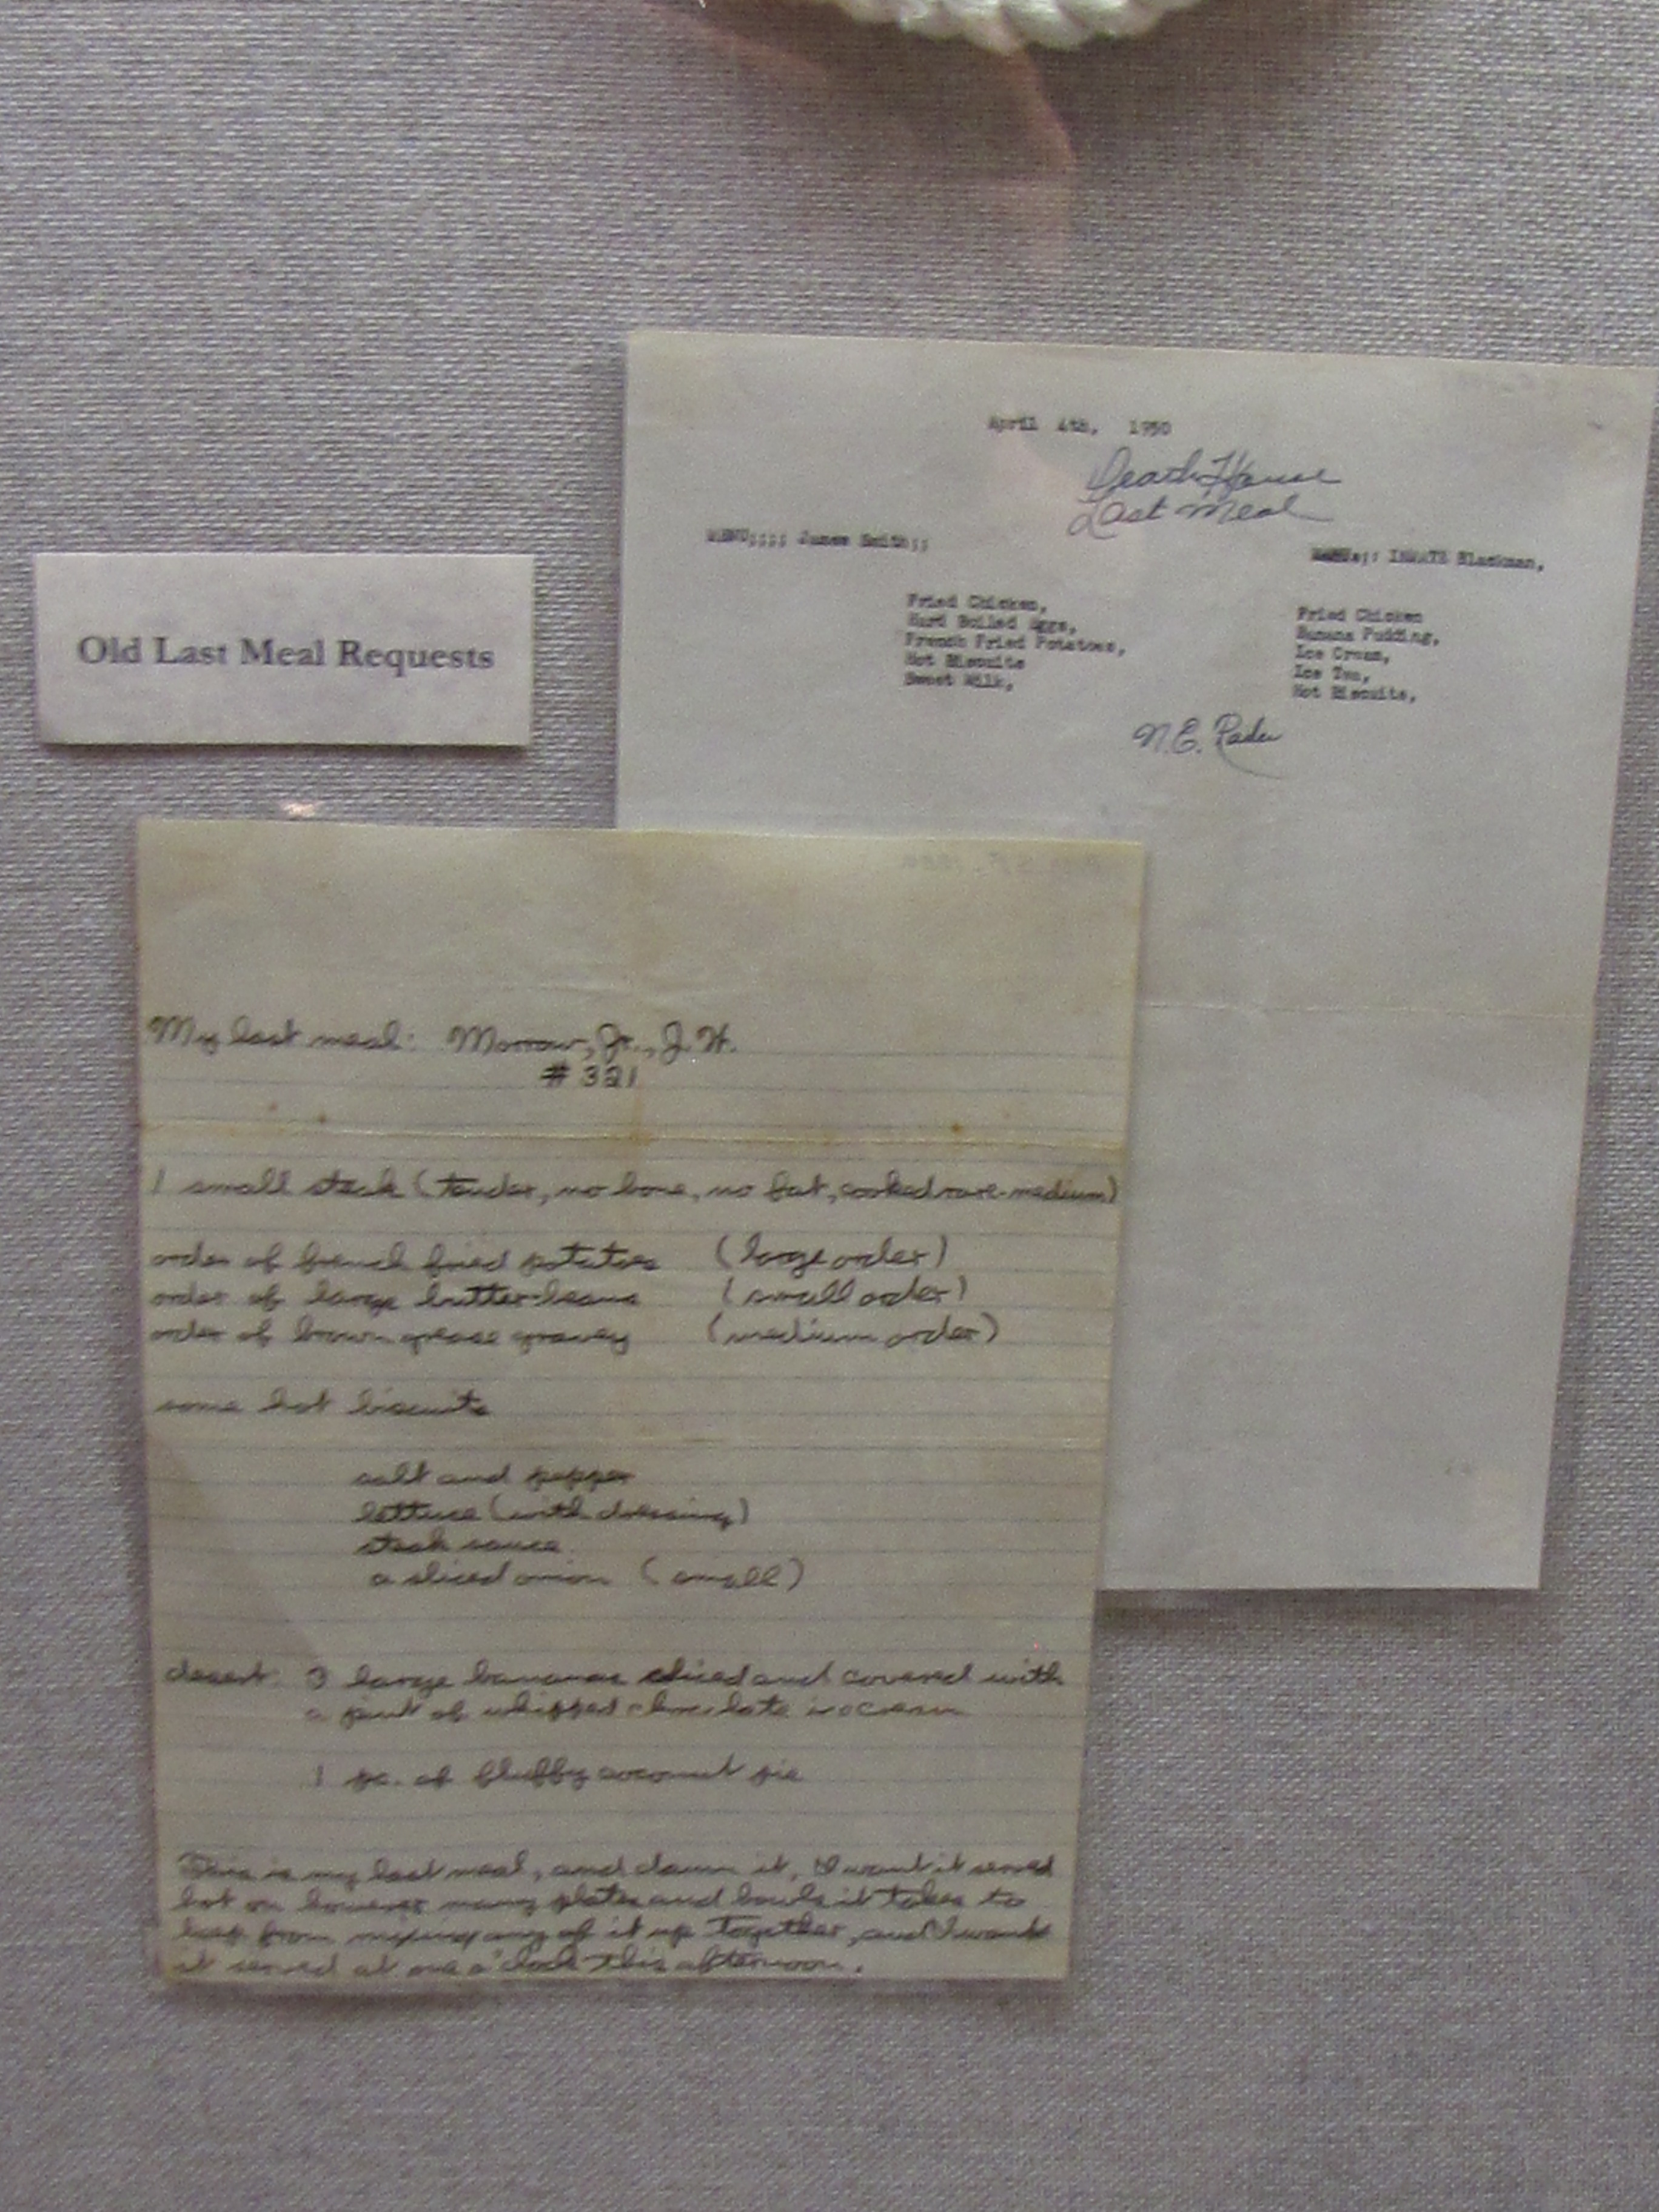 Old Last Meal Requests
April 4th, 1950
Death House
Last Meal
MENU;;;; James Smith;;
Fried Chicken,
Hard Boiled Eggs,
French Fried Potatoes,
Hot Biscuits
Sweet Milk,
INMATE Blackman,
Fried Chicken
Banana Pudding,
Ice Cream,
Ice Tea,
Hot Biscuits,
N.E. Rader
My last meal: Morrow, Jr., J.W.
#321
1 small steak (tender, no bone, no fat, cooked rare-medium)
order of french fried potatoes (large order)
order of large butter-beans (small order)
order of brown grease gravey (medium order)
some hot biscuits
salt and pepper
lettuce (with dressing)
steak sauce
a sliced onion (small)
desert: 3 large bananas sliced and covered with
a pint of whipped chocolate icecream
1 pc. of fluffy coconut pie
This is my last meal, and damn it, I want it served
hot on however many plates and bowls it takes to
keep from mixing any of it up together, and I want
it served at one o'clock this afternoon.